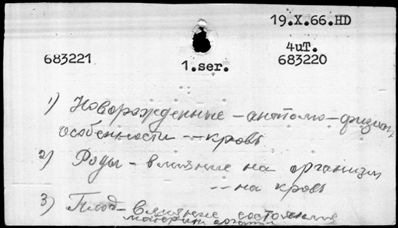 19.X.66.HD
683221
1.ser.
4uT.
683220
1) Новорожденные - анатомо-физиол.
особенности -- кровь
2) Роды - влияние на организм
-- на кровь
3) Плод - влияние состояния
матери